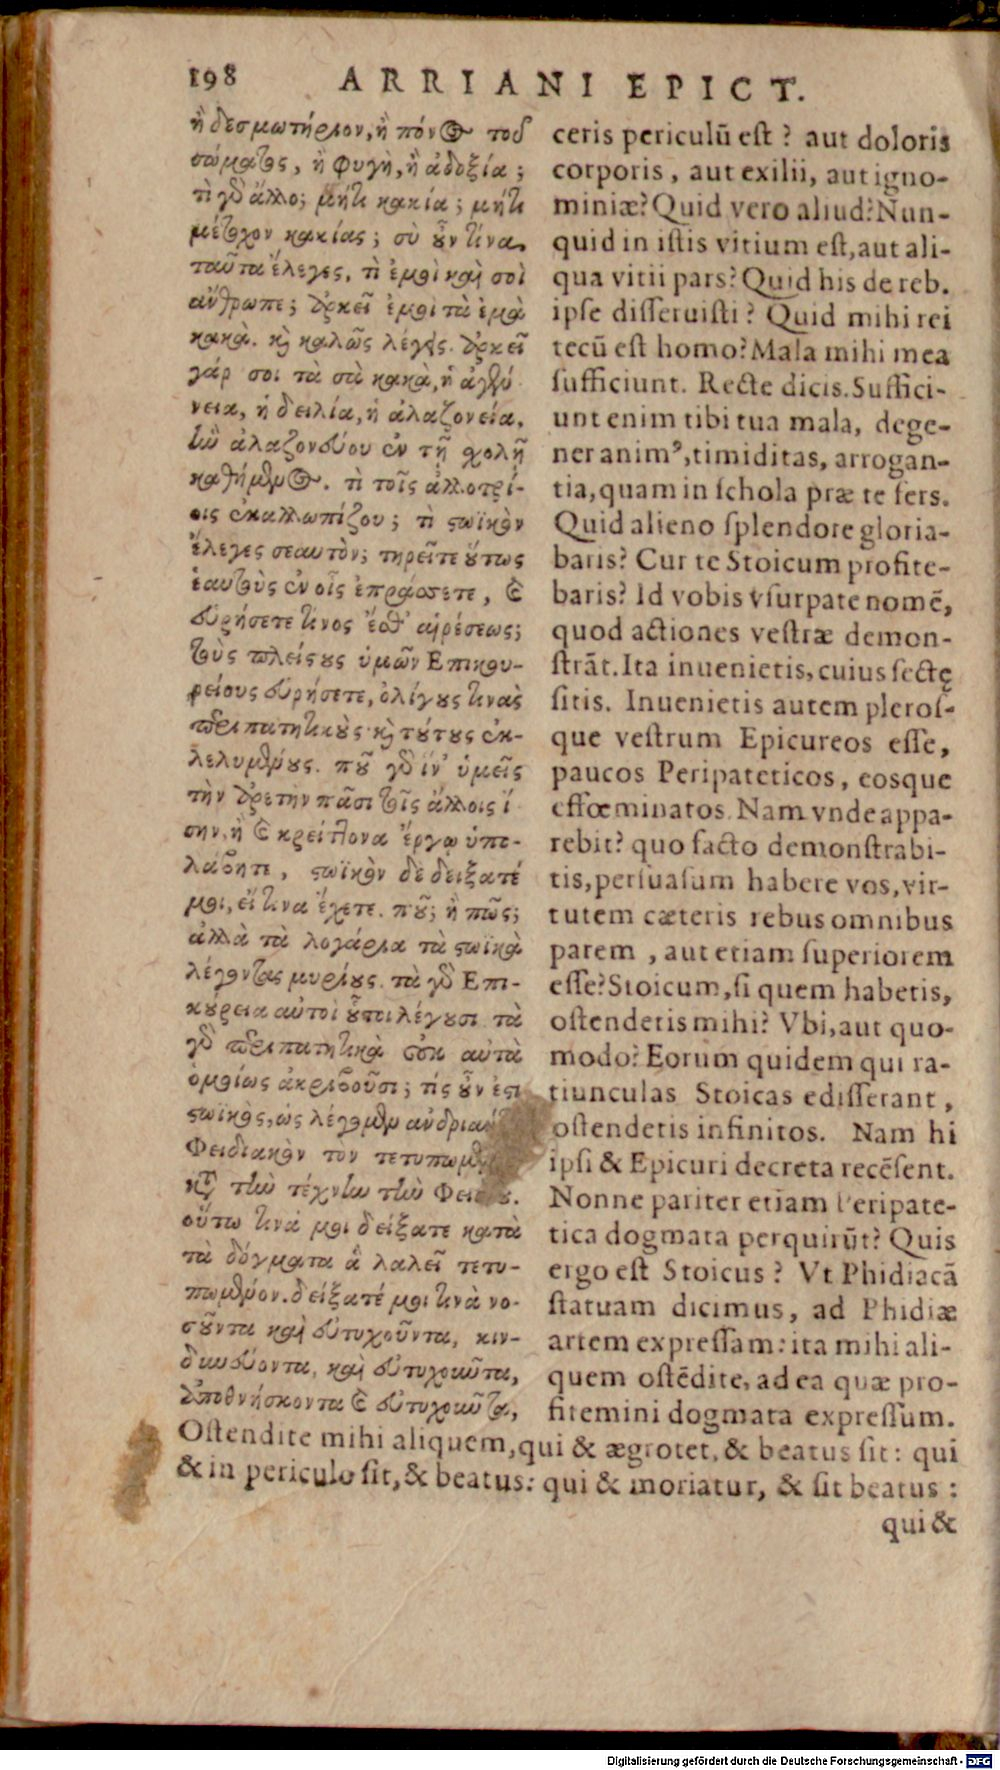 198 ARRIANI EPICT.
ἢ δεσμωτήριον, ἢ πόνος τοῦ
σώματος, ἢ φυγὴ, ἢ ἀδοξία;
τὶ γὰρ ἄλλο; μήτι κακία; μήτι
μέτοχον κακίας; σὺ οὖν τίνα
ταῦτα ἔλεγες, τὶ ἐμοὶ καὶ σοὶ
ἄνθρωπε; ἀρκεῖ ἐμοὶ τὰ ἐμὰ
κακὰ. καὶ καλῶς λέγεις. ἀρκεῖ
γάρ σοι τὰ σὰ κακὰ, ἡ ἀγέν
νεια, ἡ δειλία, ἡ ἀλαζονεία,
ἣν ἀλαζονεύου ἐν τῇ σχολῇ
καθήμενος. τὶ τοῖς ἀλλοτρί-
οις ἐκαλλωπίζου; τὶ στωϊκὸν
ἔλεγες σεαυτὸν; τηρεῖτε οὕτως
ἑαυτοὺς ἐν οἷς ἐπράσσετε, καὶ
εὑρήσετε τίνος ἔσθ' αἱρέσεως;
τοὺς πλείστους ὑμῶν Επικου-
ρείους εὑρήσετε, ὀλίγους τινὰς
περιπατητικοὺς καὶ τούτους ἐκ-
λελυμένους. ποῦ γὰρ ἵν' ὑμεῖς
τὴν ἀρετὴν πᾶσι τοῖς ἄλλοις ἴ
σην, ἢ καὶ κρείττονα ἔργῳ ὑπο-
λάβητε, στωϊκὸν δὲ δείξατέ
μοι, εἴ τινα ἔχετε. ποῦ; ἢ πῶς;
ἀλλὰ τὰ λογάρια τὰ στωϊκὰ
λέγοντας μυρίους. τὰ γὰρ Επι-
κούρεια αὐτοὶ οὗτοι λέγουσι τὰ
γὰρ περιπατητικὰ οὐκ αὐτὰ
ὁμοίως ἀκριβοῦσι; τίς οὖν ἐστι
στωϊκὸς, ὡς λέγομεν
Φειδιακὸν τον
κατὰ τὴν τέχνην τὴν
οὕτω τινά μοι δείξατε κατὰ
τὰ δόγματα ἃ λαλεῖ τετυ-
πωμένον. δείξατέ μοι τινὰ νο-
σοῦντα καὶ εὐτυχοῦντα, κιν-
δυνεύοντα, καὶ εὐτυχοῦντα,
ἀποθνήσκοντα καὶ εὐτυχοῦντα,
ceris periculū est? aut doloris
corporis, aut exilii, aut igno-
miniæ? Quid vero aliud? Nun-
quid in istis vitium est, aut ali-
qua vitii pars? Quid his de reb.
ipse disseruisti? Quid mihi rei
tecū est homo? Mala mihi mea
sufficiunt. Recte dicis. Suffici-
unt enim tibi tua mala, dege-
ner anim⁹, timiditas, arrogan-
tia, quam in schola præ te fers.
Quid alieno splendore gloria-
baris? Cur te Stoicum profite-
baris? Id vobis vsurpate nomē,
quod actiones vestræ demon-
strāt. Ita inuenietis, cuius sectę
sitis. Inuenietis autem pleros-
que vestrum Epicureos esse,
paucos Peripateticos, eosque
effœminatos. Nam vnde appa-
rebit? quo facto demonstrabi-
tis, persuasum habere vos, vir-
tutem cæteris rebus omnibus
parem, aut etiam superiorem
esse? Stoicum, si quem habetis,
ostendetis mihi? Vbi, aut quo-
modo? Eorum quidem qui ra-
tiunculas Stoicas edisserant,
ostendetis infinitos. Nam hi
ipsi & Epicuri decreta recēsent.
Nonne pariter etiam Peripate-
tica dogmata perquirūt? Quis
ergo est Stoicus? Vt Phidiacā
statuam dicimus, ad Phidiæ
artem expressam: ita mihi ali-
quem ostēdite, ad ea quæ pro-
fitemini dogmata expressum.
Ostendite mihi aliquem, qui & ægrotet, & beatus sit: qui
& in periculo sit, & beatus: qui & moriatur, & sit beatus:
qui &
Digitalisierung gefördert durch die Deutsche Forschungsgemeinschaft - DFG